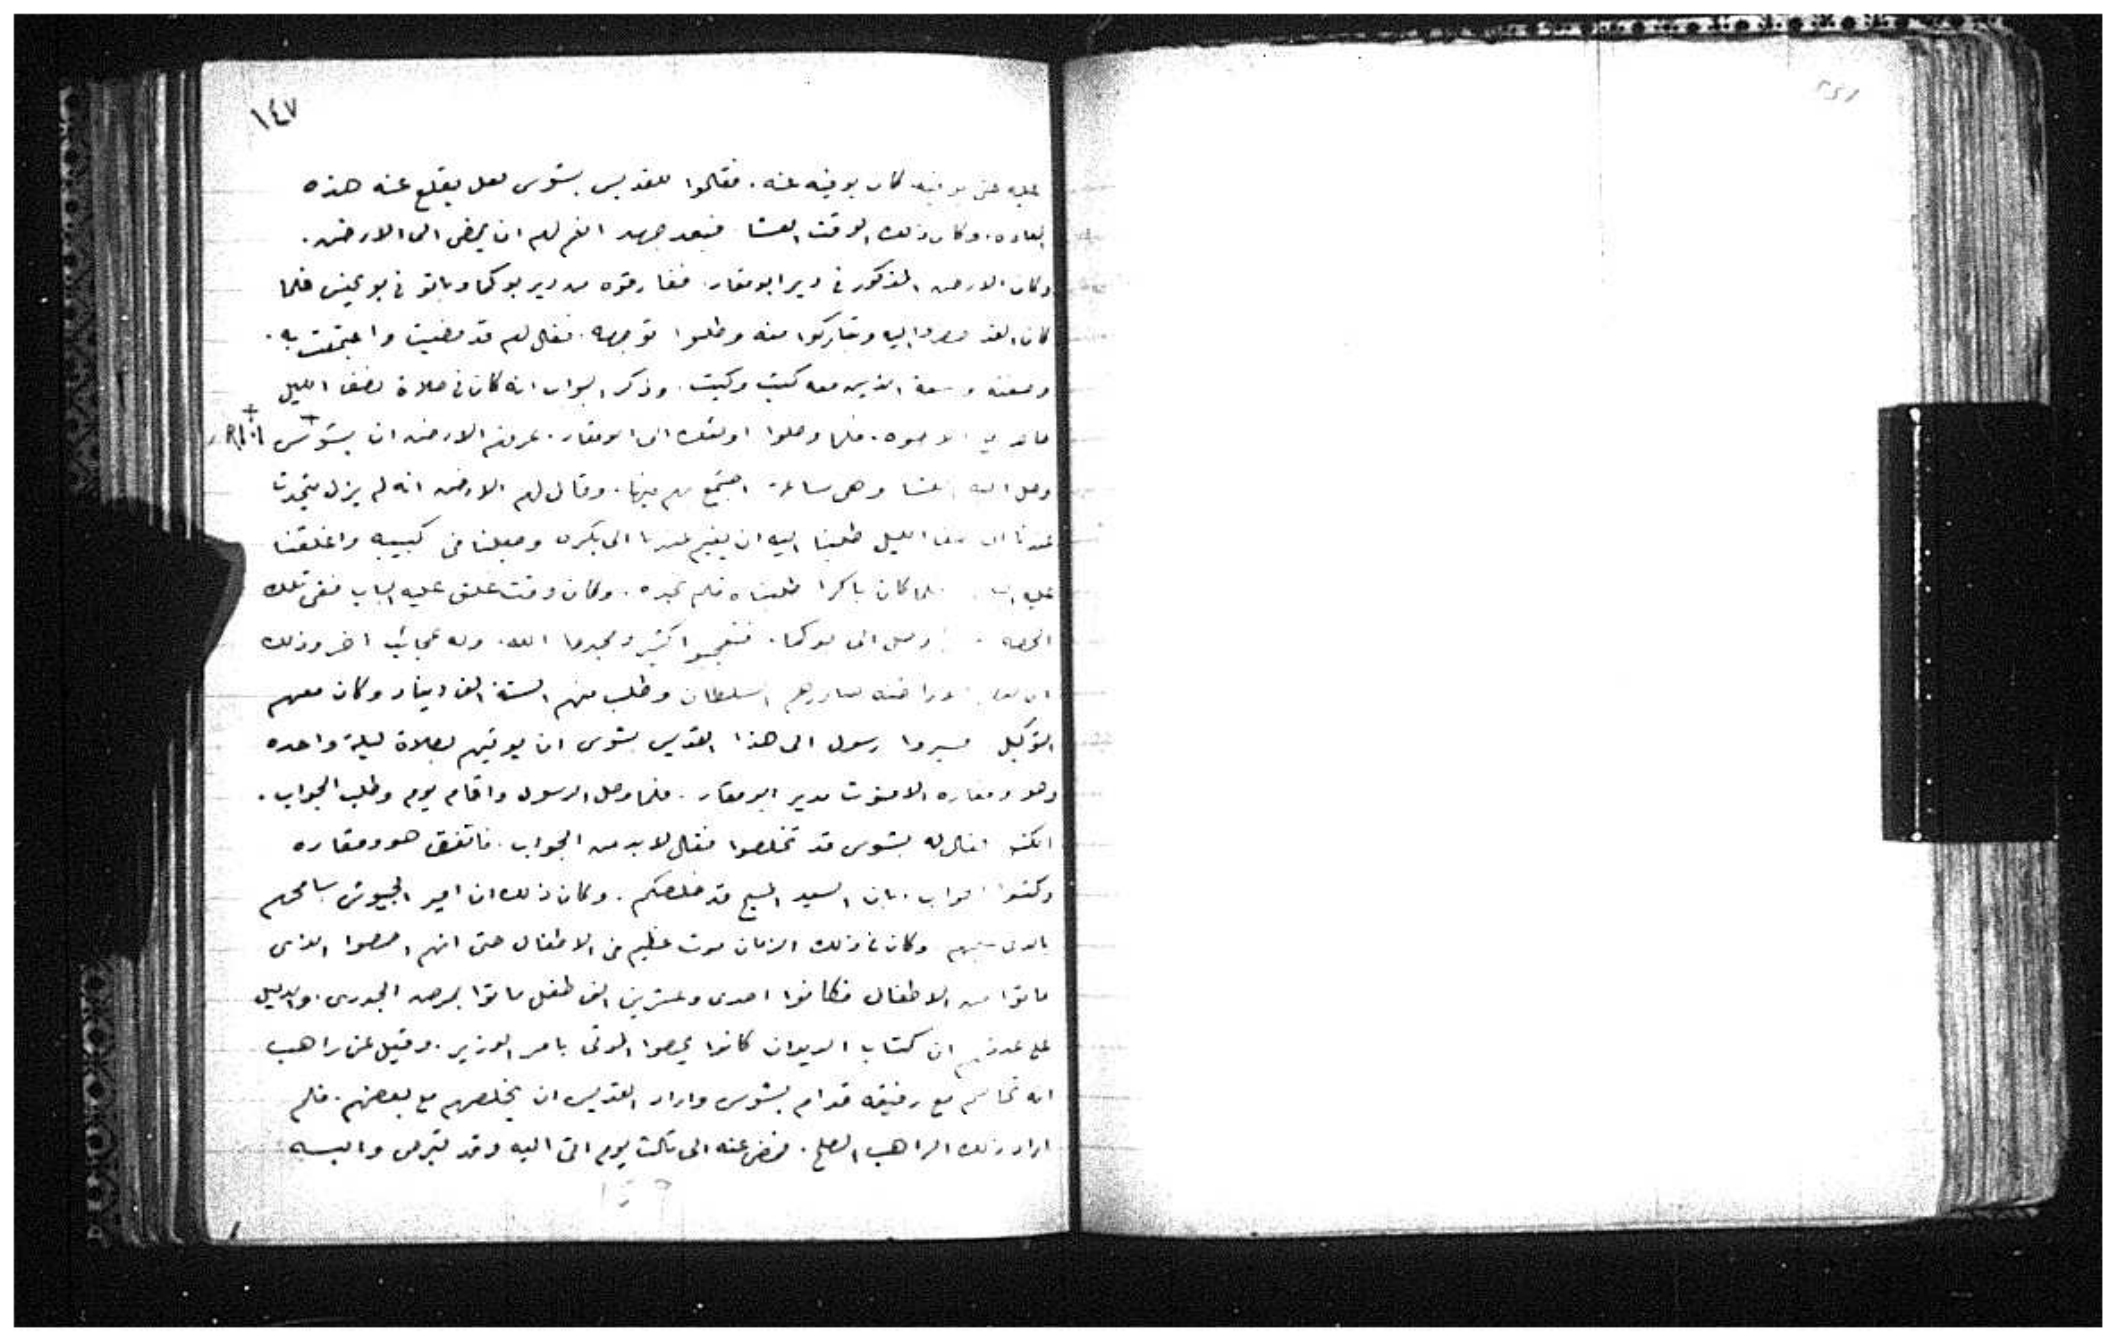 ١٤٧
كان يوفيه عنه. فقالوا للقديس بشوس لعل يقلع عنه هذه
العاده. وكان ذلك الوقت العشا فبعد جهد انعم لهم ان يمضى الى الارخن.
وكان الارخن المذكور فى دير ابو مقار. ففارقوه من دير بو كما وباتو فى بو يحنس فلما
كان الغد اليه وتباركوا منه وطلبوا توجهه. فقال لهم قد مضيت واجتمعت به.
الذين معه كيت وكيت. وذكر البواب انه كان فى صلاة نصف الليل
الاخوه. فلما وصلوا اوليك الى ابو مقار. عرفهم الارخن ان بشوس
وصل اليه العشا وهى ساعة اجتمع بهم فيها. وقال لهم الارخن انه لم يزل يتحدث
عندنا الى نصف الليل طلبنا اليه ان يقيم عندنا الى بكره وجعلناه فى كبيبه واغلقنا
عليه فلما كان باكرا طلبناه فلم نجده. وكان وقت غلق عليه الباب ففى تلك
وصل الى بو كما. فتعجبوا كثير ومجدوا الله. وله عجائب اخر وذلك
السلطان وطلب منهم الستة الف دينار وكان معهم
التوكيل فسيروا رسول الى هذا القديس بشوس ان يوتيهم بصلاة ليلة واحده
وهو ومقاره الامنوت بدير ابو مقار. فلما وصل الرسول واقام يوم وطلب الجواب.
فقال له بشوس قد تخلصوا فقال لا بد من الجواب. فاتفق هو ومقاره
وكتبوا الجواب بان السيد المسيح قد خلصكم. وكان ذلك ان امير الجيوش سامحهم
وكان فى ذلك الزمان موت عظيم فى الاطفال حتى انهم احصوا الذى
ماتوا من الاطفال فكانوا احدى وعشرين الف طفل ماتوا بمرض الجدرى. والدليل
على عددهم ان كتاب الديوان كانوا يحصوا الموتى بامر الوزير. وقيل عن راهب
انه تخاصم مع رفيقه قدام بشوس واراد القديس ان يخلصهم مع بعضهم. فلم
اراد ذلك الراهب الصلح. فمضى عنه الى ثالث يوم اتى اليه وقد تبرص والبسه